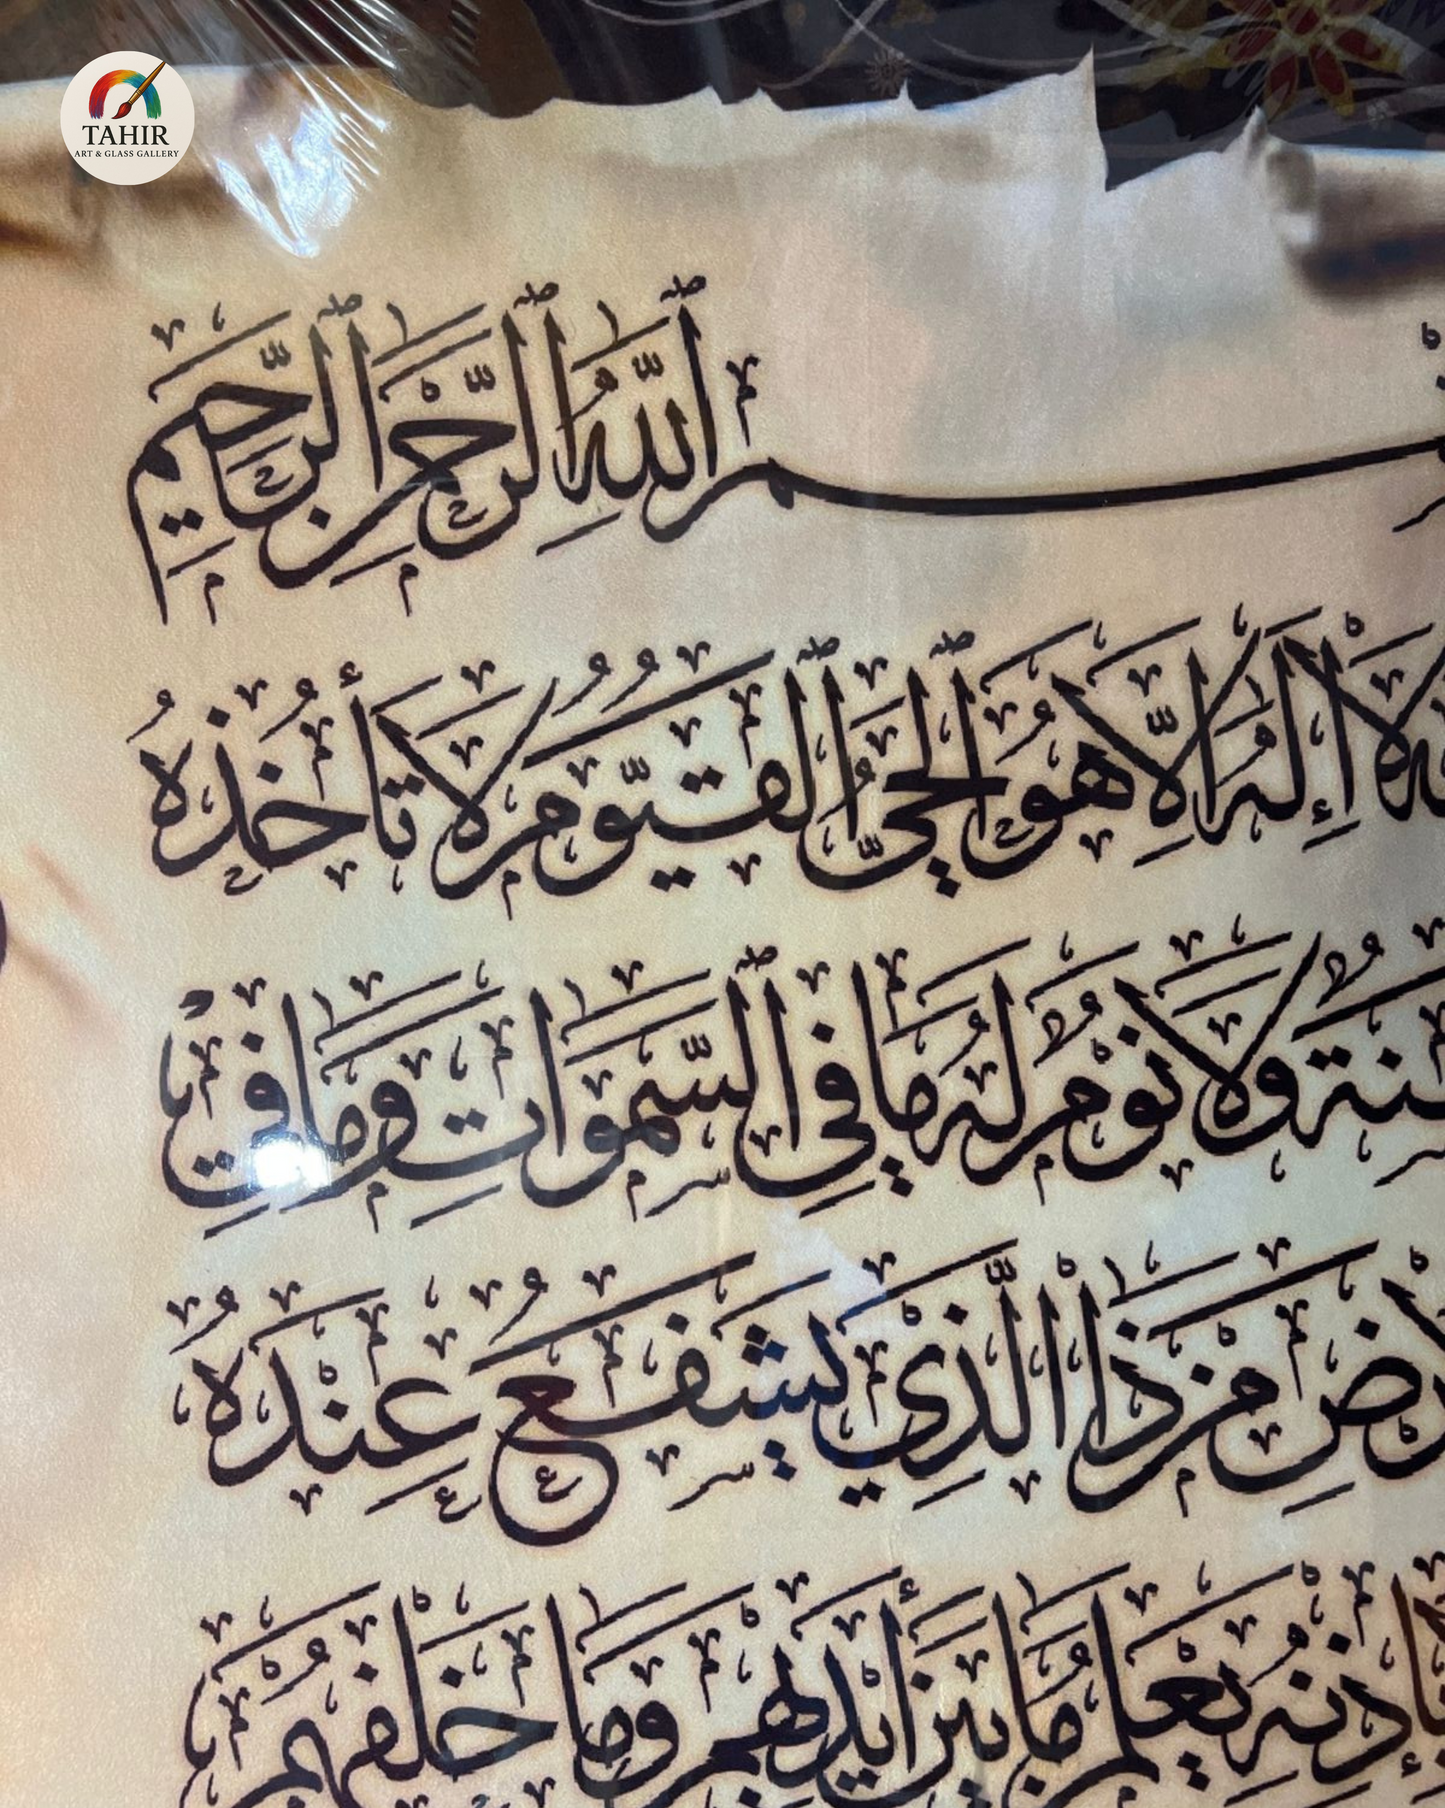 TAHIR
ART & GLASS GALLERY
بِسْمِ ٱللَّهِ ٱلرَّحْمَٰنِ ٱلرَّحِيمِ
لَا إِلَٰهَ إِلَّا هُوَ ٱلْحَيُّ ٱلْقَيُّومُ لَا تَأْخُذُهُ
سِنَةٌ وَلَا نَوْمٌ لَهُ مَا فِي ٱلسَّمَٰوَاتِ وَمَا فِي
ٱلْأَرْضِ مَنْ ذَا ٱلَّذِي يَشْفَعُ عِنْدَهُ
بِإِذْنِهِ يَعْلَمُ مَا بَيْنَ أَيْدِيهِمْ وَمَا خَلْفَهُمْ